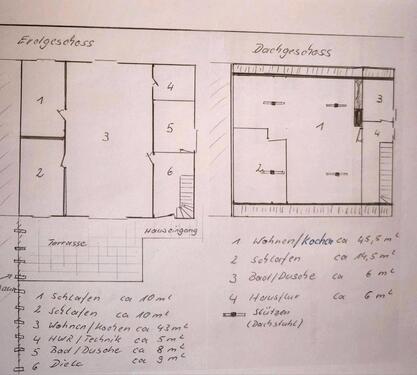 Erdgeschoss
1
2
3
4
5
6
Terrasse
Hauseingang
1 Schlafen ca 10 m²
2 Schlafen ca 10 m²
3 Wohnen/Kochen ca 43 m²
4 HWR/Technik ca 5 m²
5 Bad/Dusche ca 8 m²
6 Diele ca 9 m²
Dachgeschoss
1
2
3
4
1 Wohnen/Kochen ca 45,5 m²
2 Schlafen ca 14,5 m²
3 Bad/Dusche ca 6 m²
4 Hausflur ca 6 m²
Stützen
(Dachstuhl)